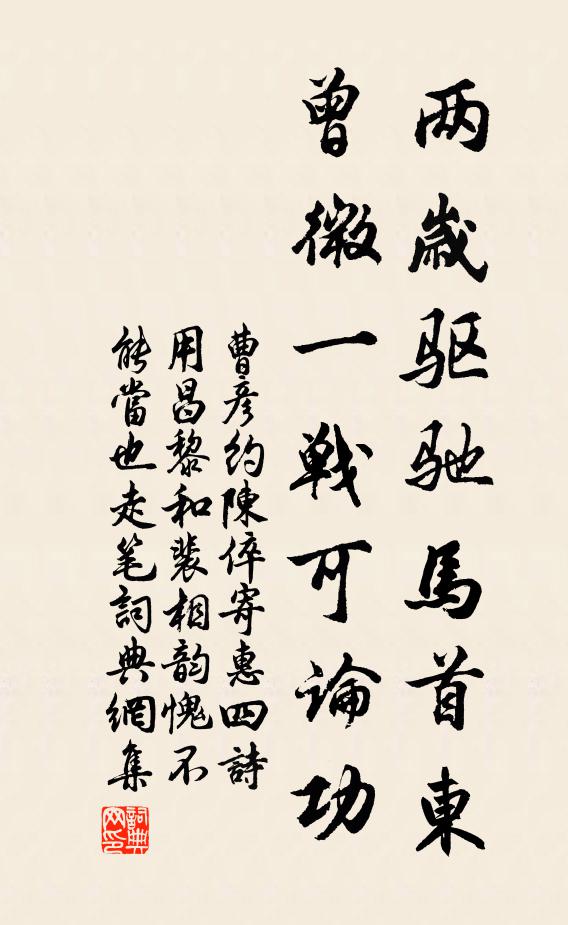 两歲驱驰馬首東
曾微一戰可論功
曹彦約陳倅寄惠四詩
用昌黎和裴相韵愧不
能當也走笔詞典網集
詞典网印